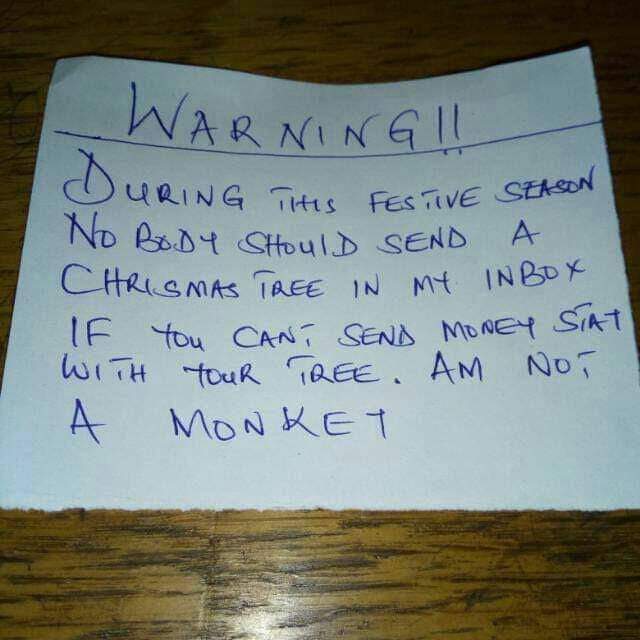 WARNING!!
DURING THIS FESTIVE SEASON
NO BODY SHOULD SEND A
CHRISMAS TREE IN MY INBOX
IF YOU CANT SEND MONEY STAY
WITH YOUR TREE. AM NOT
A MONKEY